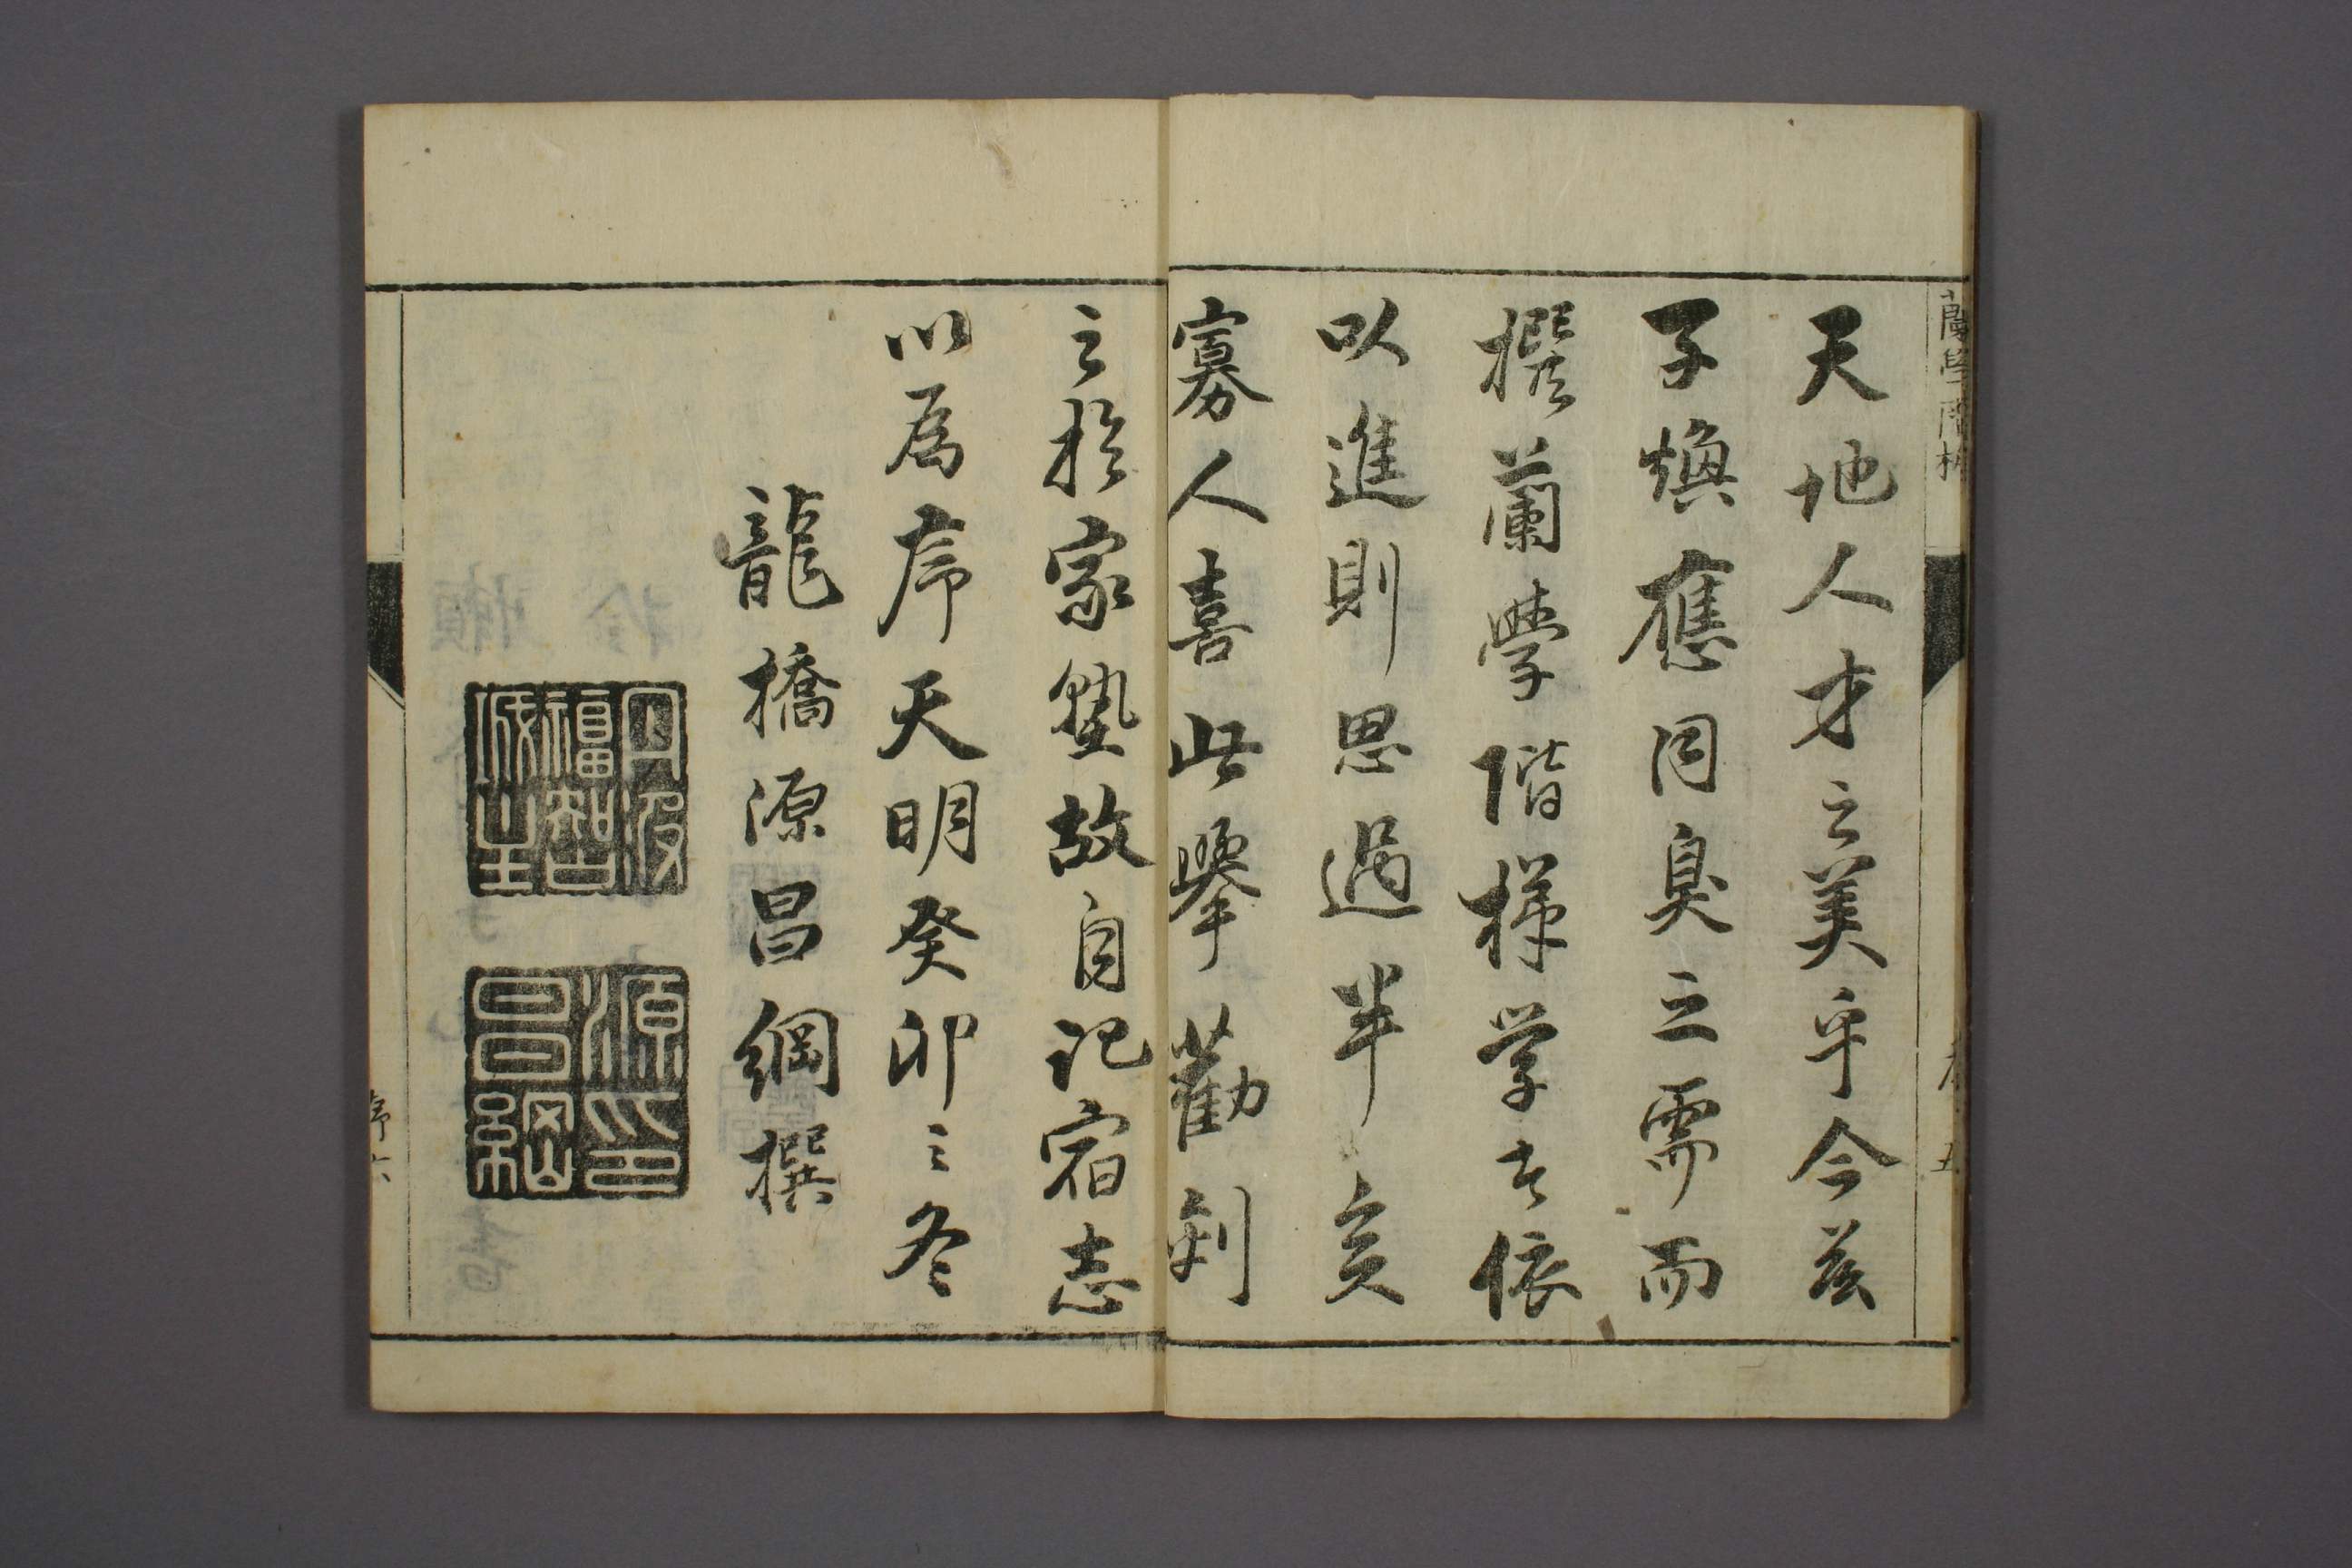 天地人才之美乎今茲
子煥應同臭之需而
撰蘭學階梯学者依
以進則思過半矣
寡人喜此擧勸刻
之於家塾故自記宿志
以爲序天明癸卯之冬
龍橋源昌綱撰
丹波福知城主
源印昌綱
蘭學階梯
序 五
序 六